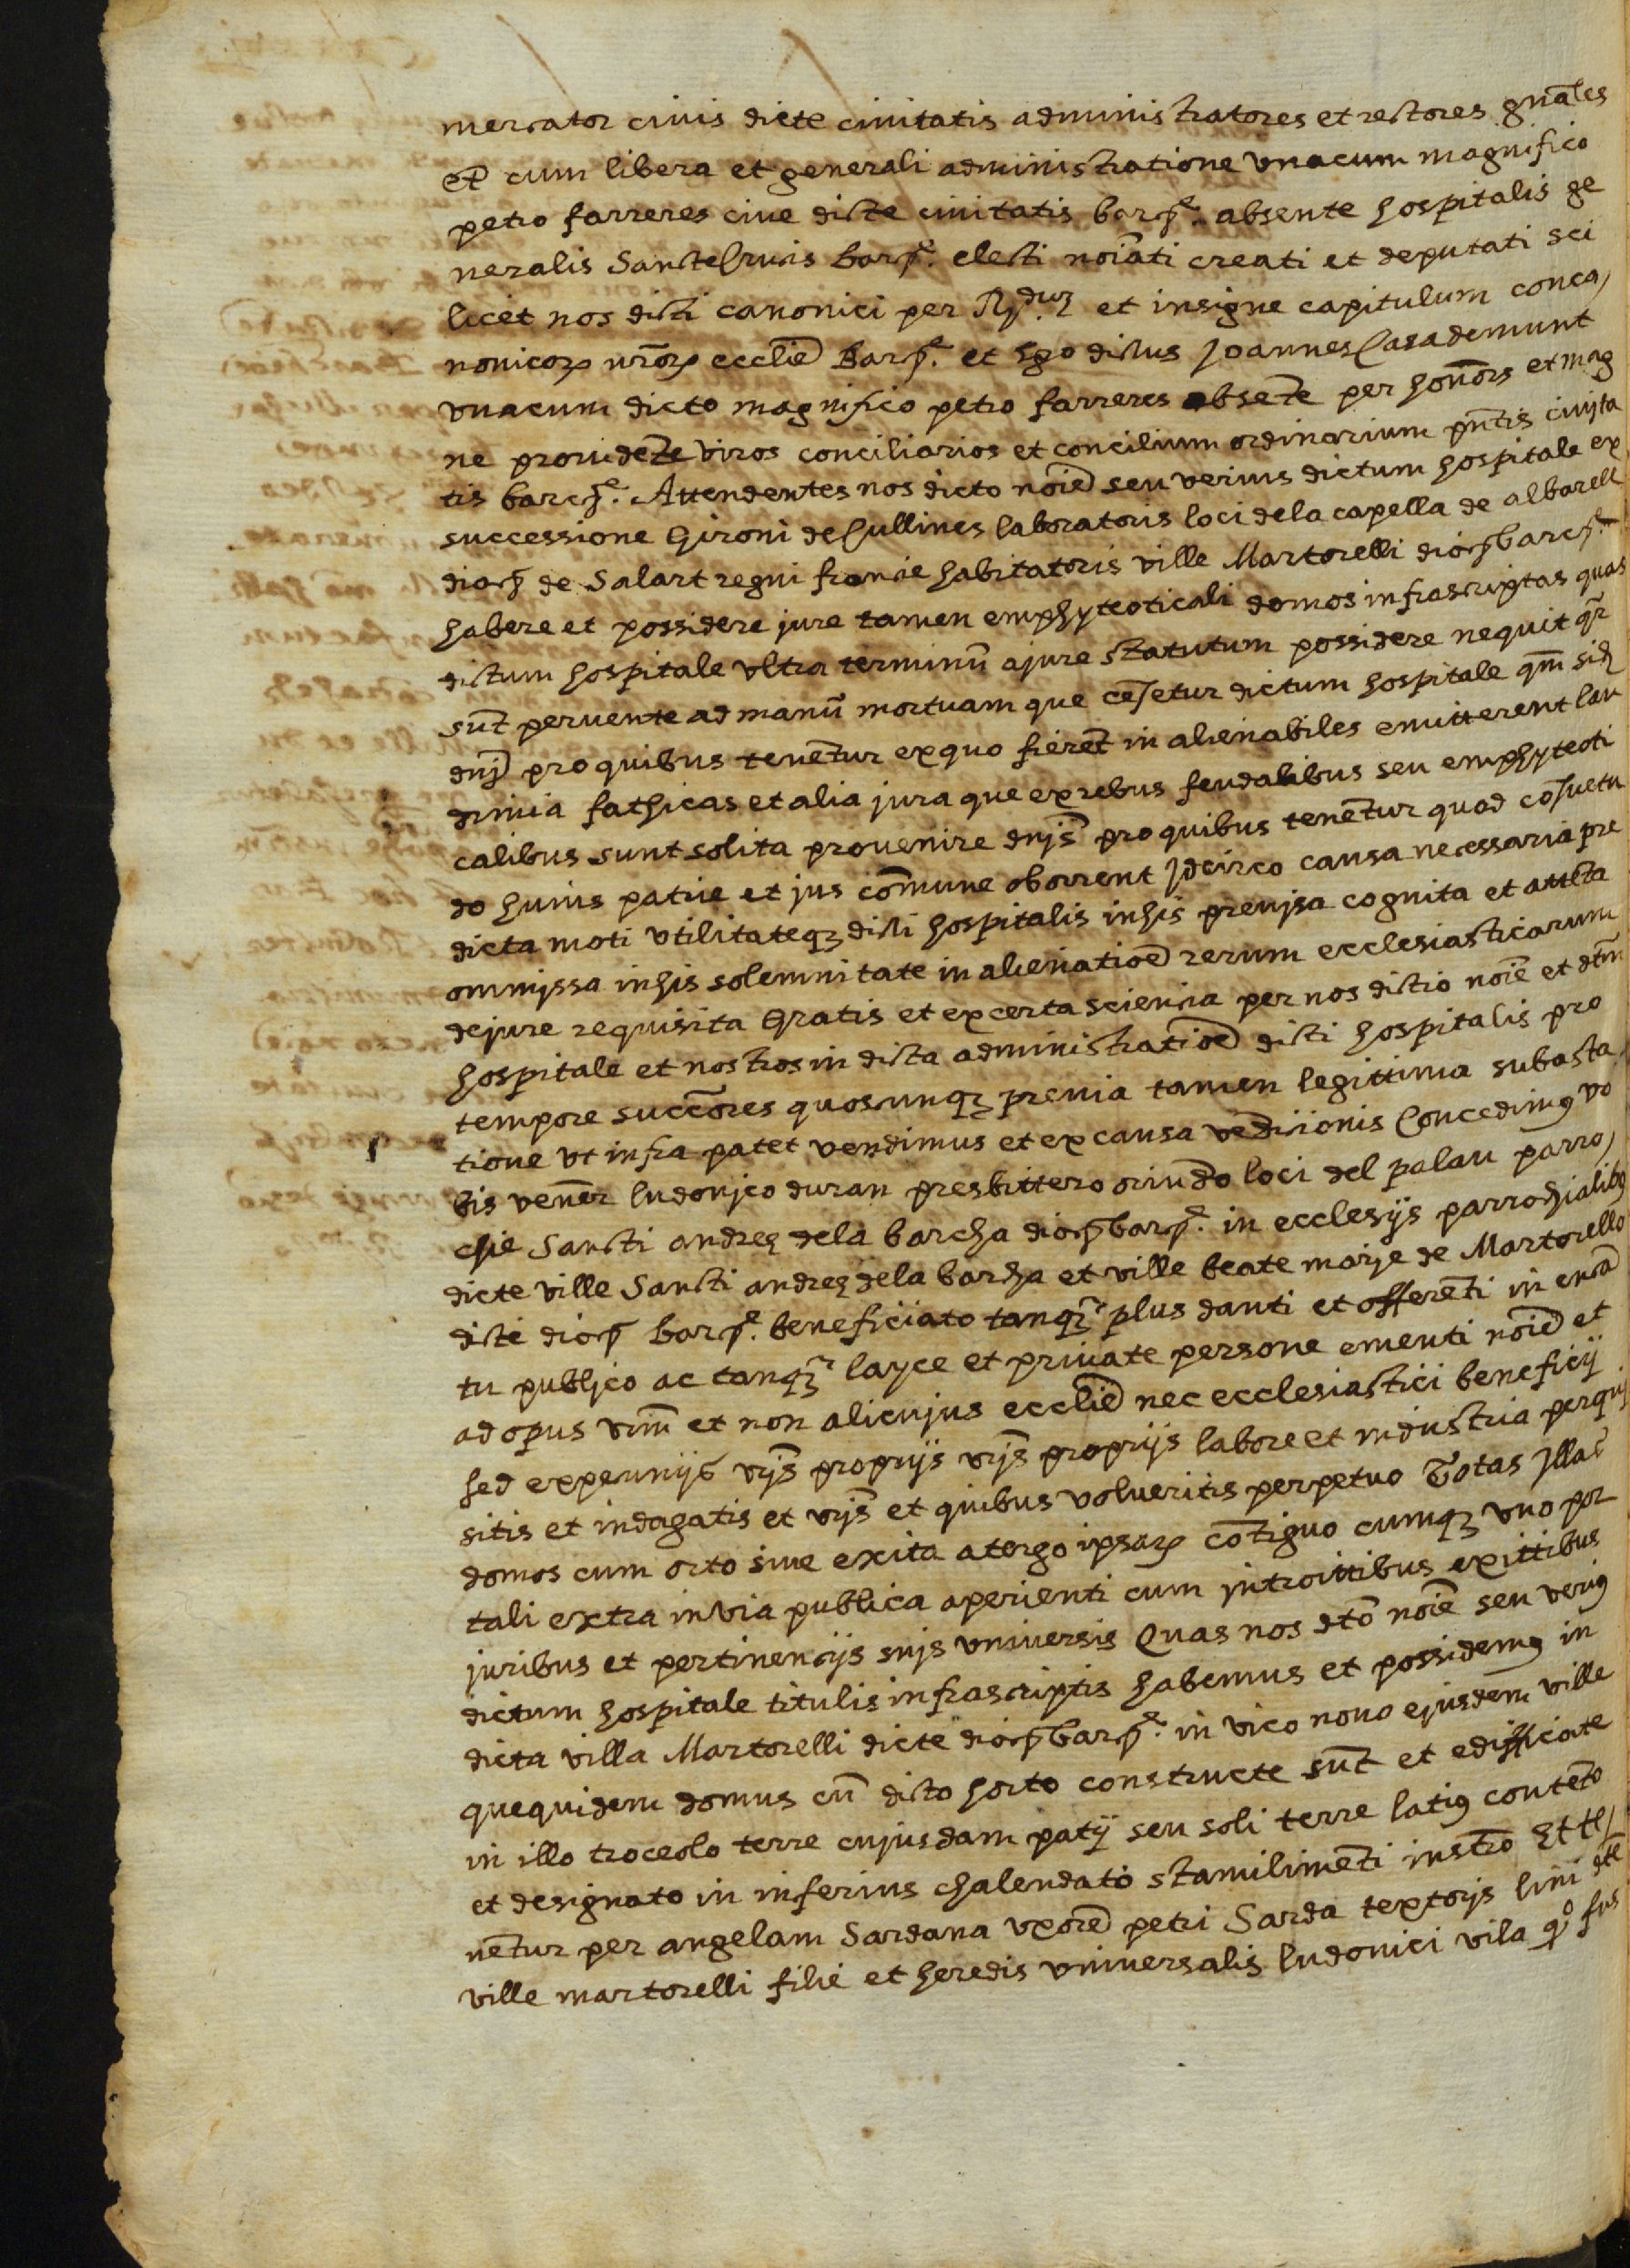 mercator ciuis dicte ciuitatis administratores et rectores gnāles
et cum libera et generali administratione vnacum magnifico
petro farreres ciue dicte ciuitatis barc̄. absente hospitalis ge
neralis Sancte Crucis barc̄. electi noiāti creati et deputati sci
licet nos dicti canonici per Rdum et insigne capitulum conca,
nonicoꝝ nr̄oꝝ ecclīe Barc̄. et Ego dictus Joannes Casademunt
vnacum dicto magnifico petro farreres absēte per honōrs et mag
ne prouidētē viros conciliarios et concilium ordinarium pn̄tis ciuita
tis barc̄. Attendentes nos dicto noīe seu verius dictum hospitale ex
successione Gironi de Cullines laboratoris loci dela capella de albarell
dioc̄ de Salart regni francie habitatoris ville Martorelli dioc̄ barc̄.
habere et possidere jure tamen emphyteoticali domos infrascriptas quas
dictum hospitale vltra terminū ajure statutum possidere nequit qr̄
sūt peruente ad manū mortuam que cēsetur dictum hospitale qm̄ siq̄
dnj̄ pro quibus tenētur ex quo fierēt in alienabiles emitterent lau
dimia fathicas et alia jura que ex rebus feudalibus seu emphyteoti
calibus sunt solita prouenire dnj̄s pro quibus tenētur quod cōsuetu
do huius patrie et jus cōmune oborrent Jdcirco causa necessaria pre
dicta moti vtilitateqꝫ dicti hospitalis inhis preuisa cognita et attēta
ommissa inhis solemnitate in alienatiōe rerum ecclesiasticarum
dejure requisita Gratis et excerta scientia per nos dicto noīe et dt̄m
hospitale et nostros in dicta administratiōe dicti hospitalis pro
tempore succōres quoscunqꝫ preuia tamen legittima subasta
tione vt infra patet vendimus et ex causa vēdicionis Concedimꝰ vo
bis venēr ludouico duran presbittero oriūdo loci del palau parro,
chie Sancti andreę dela barcha dioc̄ barc̄. in ecclesijs parrochialibꝰ
dicte ville Sancti andreę dela barcha et ville beate marie de Martorello
dicte dioc̄ barc̄. beneficiato tanqꝫ plus danti et offerēti in encā
tu publico ac tanqꝫ layce et priuate persone ementi noīe et
ad opus vrm̄ et non alicujus ecclīe nec ecclesiastici beneficij
sed expecunijs vrj̄s proprijs vrj̄s proprijs labore et industria perqui
sitis et indagatis et vrj̄s et quibus volueritis perpetuo Totas Jllas
domos cum orto siue exita atergo ipsaꝝ cōtiguo cumqꝫ vno por
tali extra in via publica aperienti cum introittibus exittibus
juribus et pertinencijs suis vniuersis Quas nos dtō noīe seu verius
dictum hospitale titulis infrascriptis habemus et possidemꝰ in
dicta villa Martorelli dicte dioc̄ barc̄. in vico nouo ejusdem ville
quequidem domus cū dicto horto constructe sūt et edifficate
in illo troceolo terre cujusdam patij seu soli terre latiꝰ contēto
et designato in inferius chalendato stamilimēti instrō Et te,
nētur per angelam Sardana vxorē petri Sarda textoris lini dte
ville martorelli filie et heredis vniuersalis ludouici vila qo